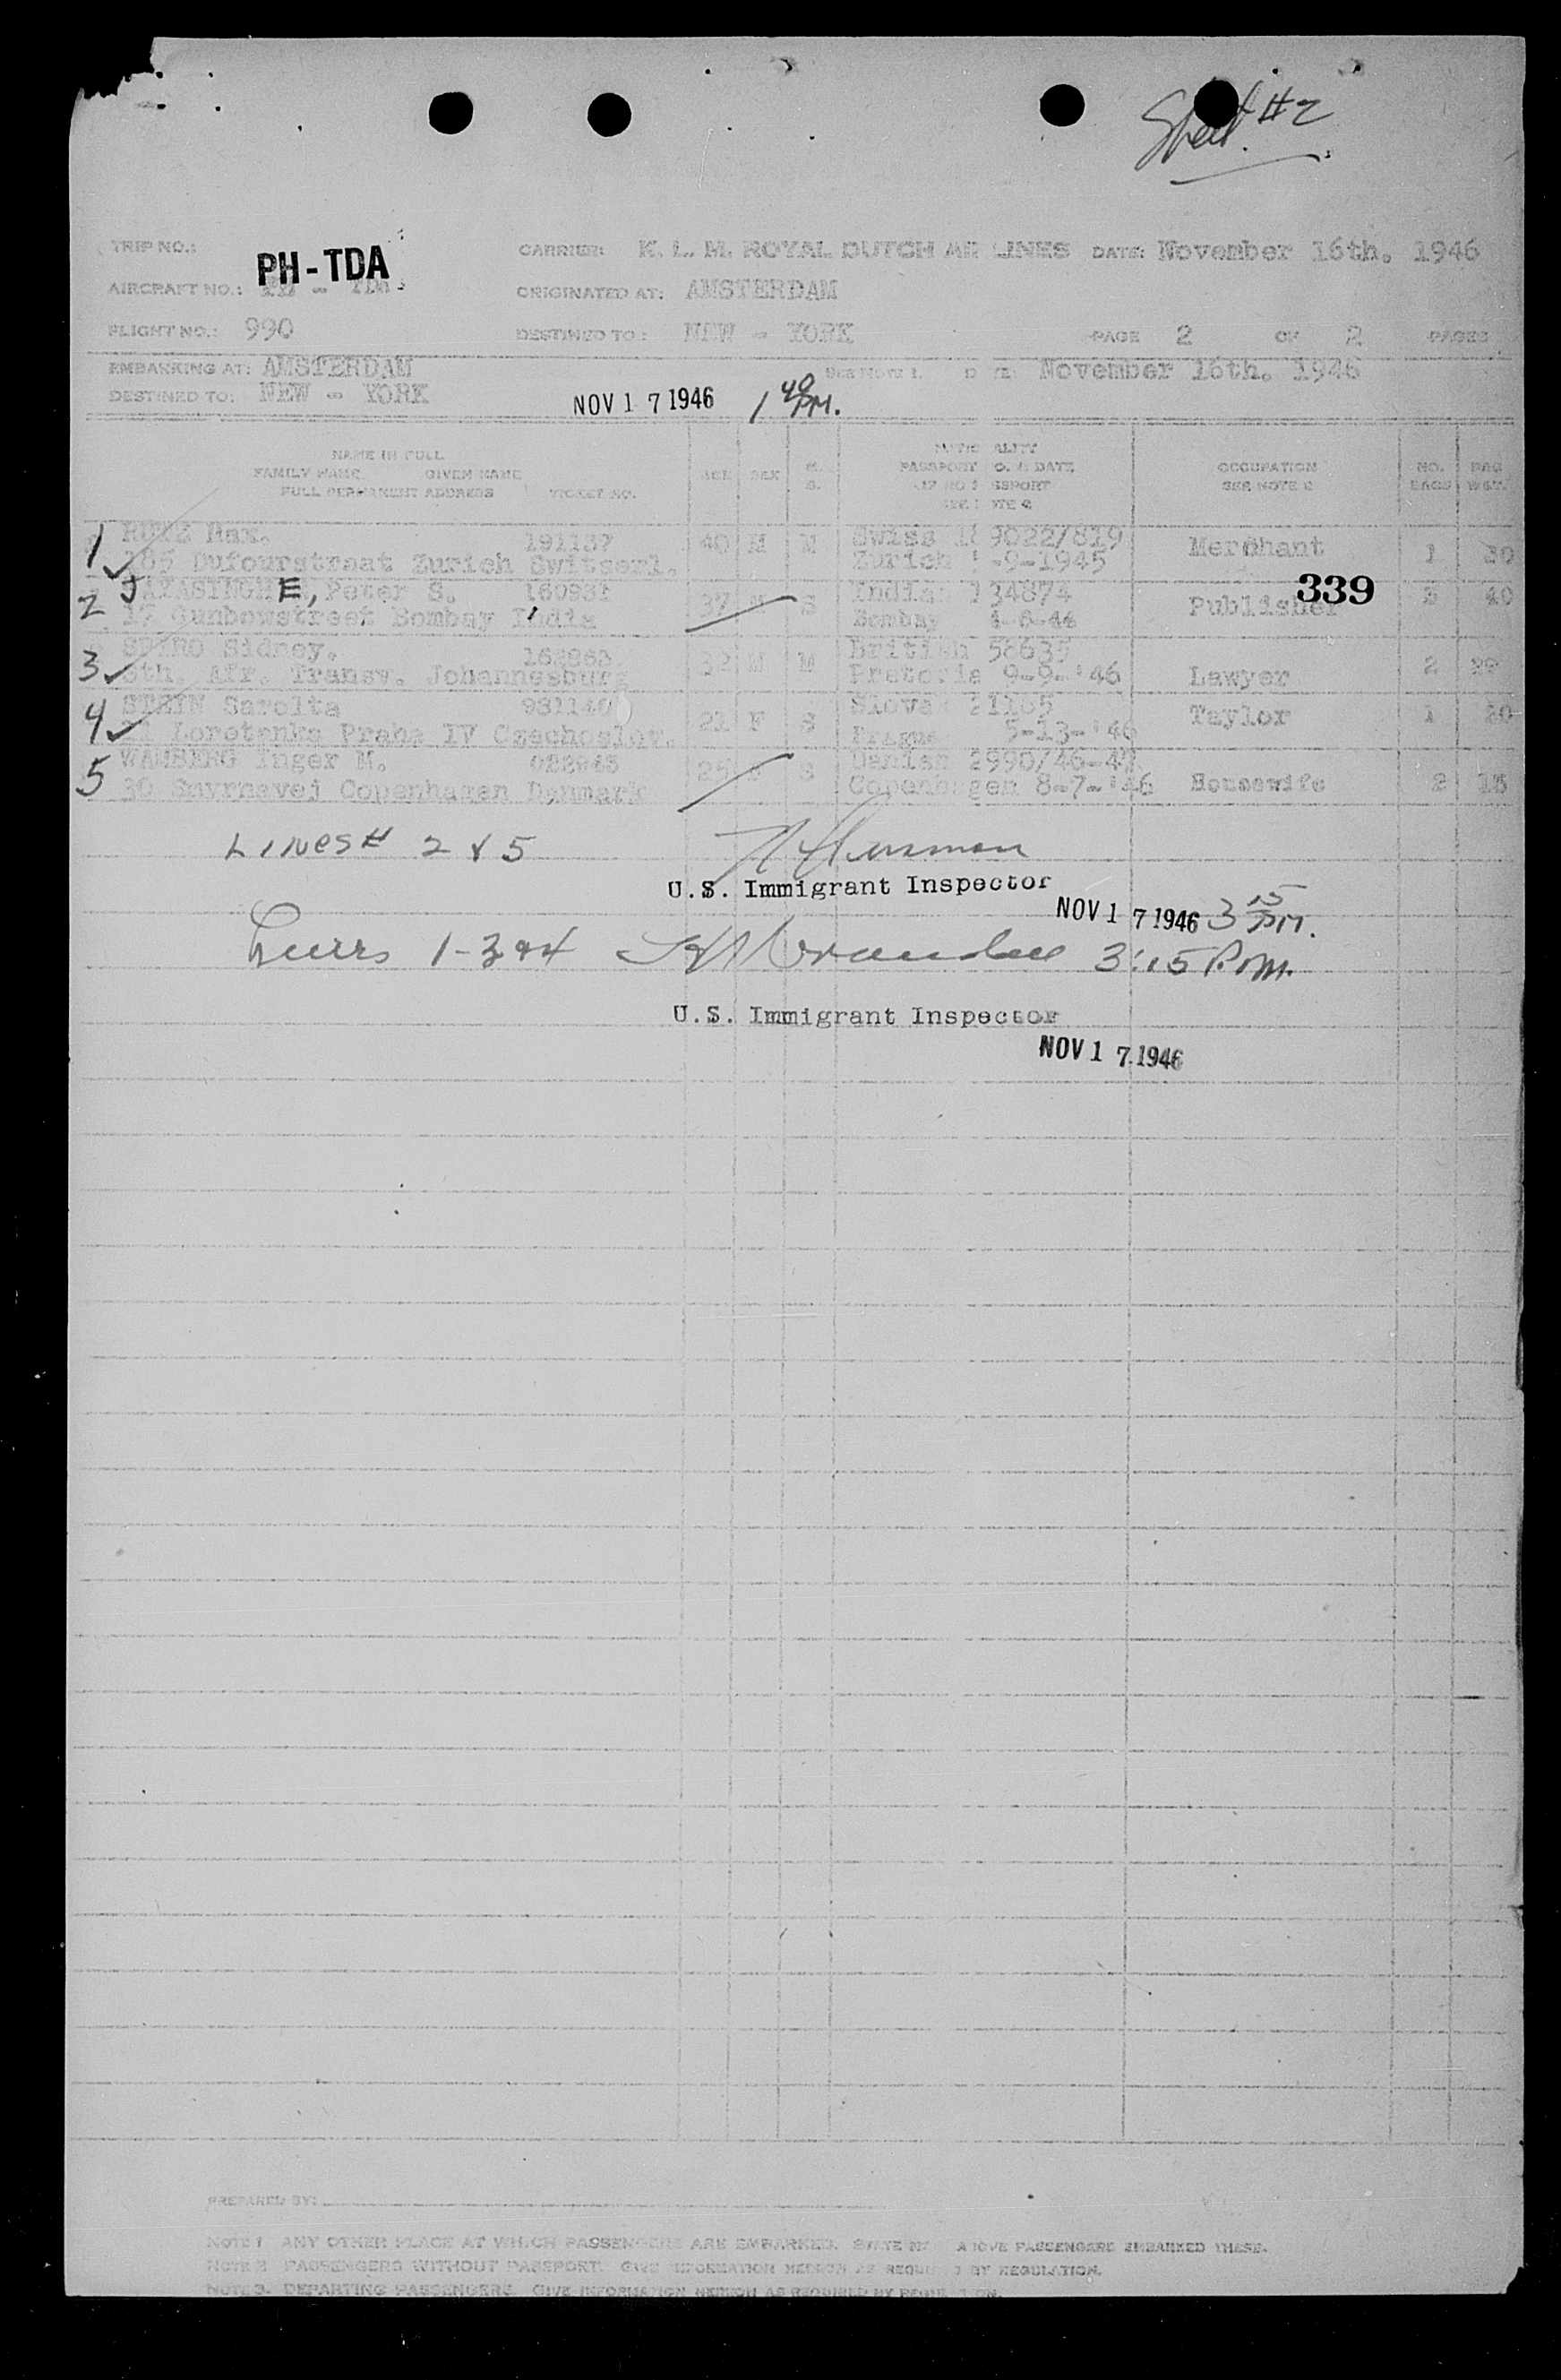 Sheet #2
TRIP NO.: CARRIER: K. L. M. ROYAL DUTCH AIR LINES DATE: November 16th. 1946
PH-TDA
AIRCRAFT NO.: PH - TDA ORIGINATED AT: AMSTERDAM
FLIGHT NO.: 990 DESTINED TO: NEW - YORK PAGE 2 OF 2 PAGES
EMBARKING AT: AMSTERDAM SEE NOTE 1. DATE: November 16th. 1946
DESTINED TO: NEW - YORK NOV 17 1946 1 40 PM.
NAME IN FULL
FAMILY NAME GIVEN NAME
FULL PERMANENT ADDRESS TICKET NO. AGE SEX M. S. NATIONALITY PASSPORT NO. & DATE OCCUPATION SEE NOTE NO. BAGS BAG WGT.
1 Max. 191137 40 M M Swiss 9022/819 Merchant 1 30
Dufourstraat Zurich Switserl. Zurich -9-1945
339
2 JAYASINGHE, Peter S. 160931 37 M S Indian 34874 Publisher 40
17 Gunbowstreet Bombay India Bombay
3 SPIRO Sidney. 32 M M British 58635 Lawyer 2
Sth. Afr. Transv. Johannesburg Pretoria 9-9-'46
4 STEIN Sarolta 21 F S Slovak Taylor 1
Loretanka Praha IV Czechoslov. Prague 5-13-'46
5 WAMBERG Inger M. 25 S Danish 2990/46-47 Housewife 2
30 Smyrnavej Copenhagen Denmark Copenhagen 8-7-'46
LINES # 2 & 5
U.S. Immigrant Inspector
NOV 17 1946 3 15 PM.
Lines 1-3&4 3:15 P.M.
U.S. Immigrant Inspector
NOV 17 1946
PREPARED BY:
NOTE 1 ANY OTHER PLACE AT WHICH PASSENGERS ARE EMBARKED. STATE ABOVE PASSENGERS EMBARKED THERE.
NOTE 2 PASSENGERS WITHOUT PASSPORT. GIVE INFORMATION HEREON AS REQUIRED BY REGULATION.
NOTE 3. DEPARTING PASSENGERS. GIVE INFORMATION HEREON AS REQUIRED BY REGULATION.